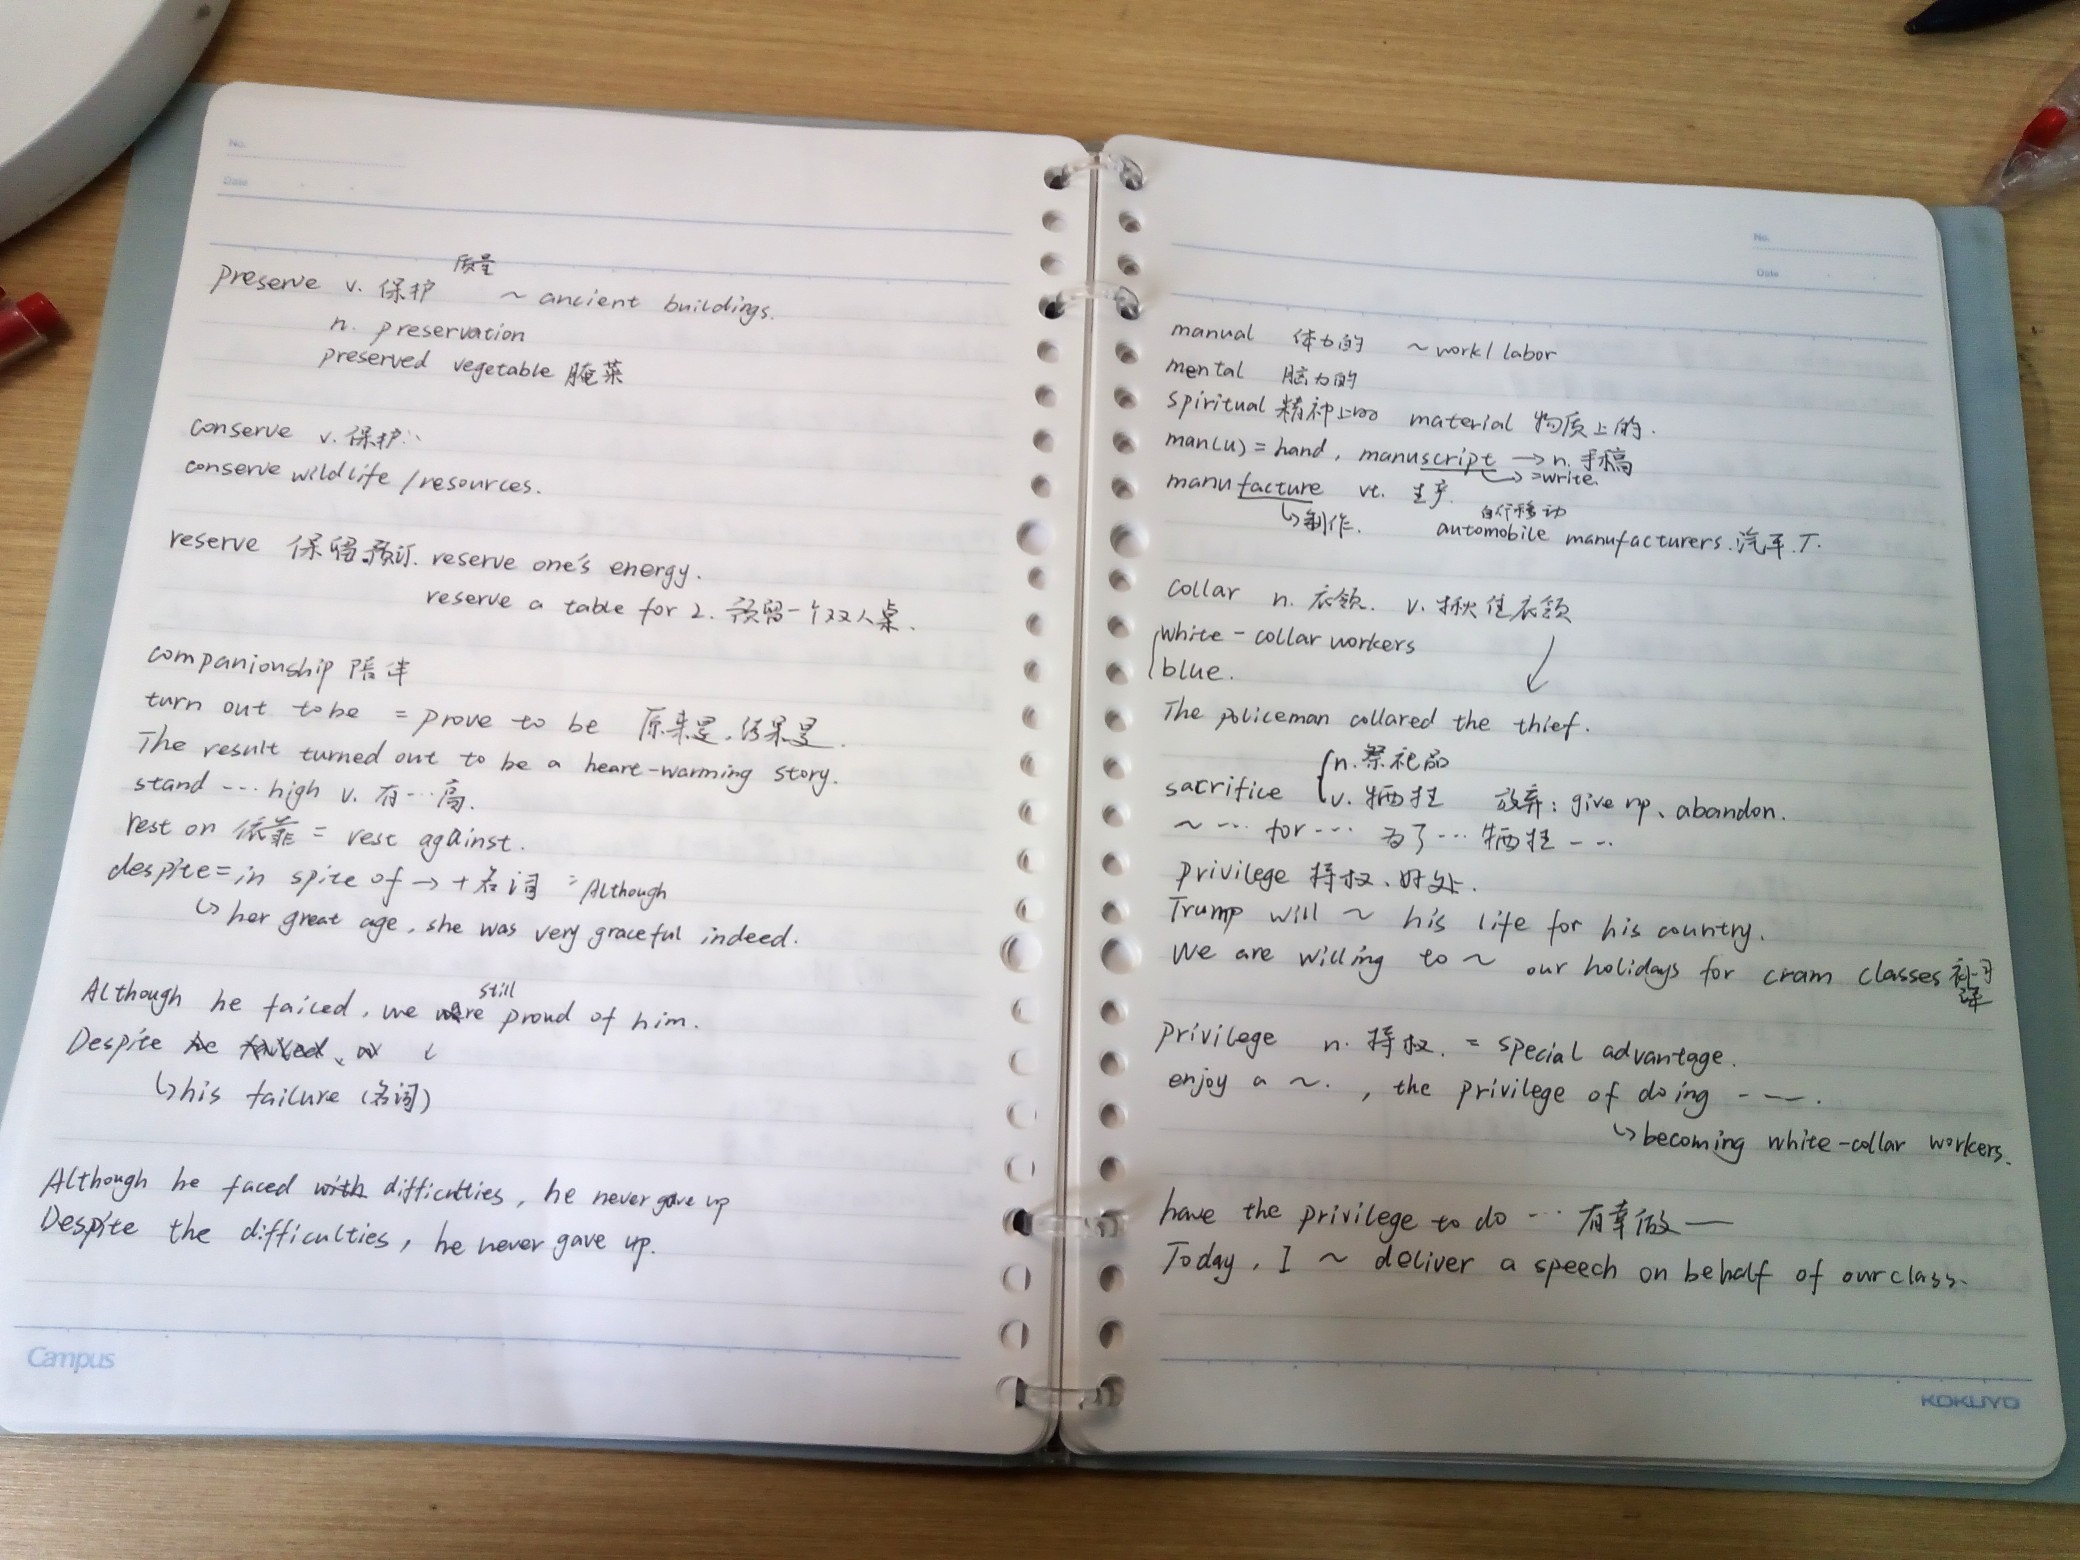 No.
Date
质量
preserve v. 保护 ~ ancient buildings.
n. preservation
preserved vegetable 腌菜
conserve v. 保护
conserve wildlife / resources.
reserve 保留 预订. reserve one's energy.
reserve a table for 2. 预留一个双人桌.
companionship 陪伴
turn out to be = prove to be 原来是, 结果是.
The result turned out to be a heart-warming story.
stand ... high v. 有...高.
rest on 依靠 = rest against.
despite = in spite of → + 名词 = Although
↳ her great age, she was very graceful indeed.
still
Although he failed, we were proud of him.
Despite he failed,
↳ his failure (名词)
Although he faced with difficulties, he never gave up
Despite the difficulties, he never gave up.
Campus
No.
Date
manual 体力的 ~ work / labor
mental 脑力的
spiritual 精神上的 material 物质上的.
man(u) = hand, manuscript → n. 手稿
↳ =write.
manufacture vt. 生产.
自行移动
↳ 制作. automobile manufacturers. 汽车.厂.
collar n. 衣领. v. 揪住衣领
white-collar workers
blue.
The policeman collared the thief.
n. 祭祀品
sacrifice v. 牺牲 放弃: give up、abandon.
~ ... for ... 为了... 牺牲 ...
privilege 特权、好处.
Trump will ~ his life for his country.
We are willing to ~ our holidays for cram classes 补习
课
privilege n. 特权. = special advantage.
enjoy a ~. , the privilege of doing ---.
↳ becoming white-collar workers.
have the privilege to do ... 有幸做 —
Today, I ~ deliver a speech on behalf of our class.
KOKUYO